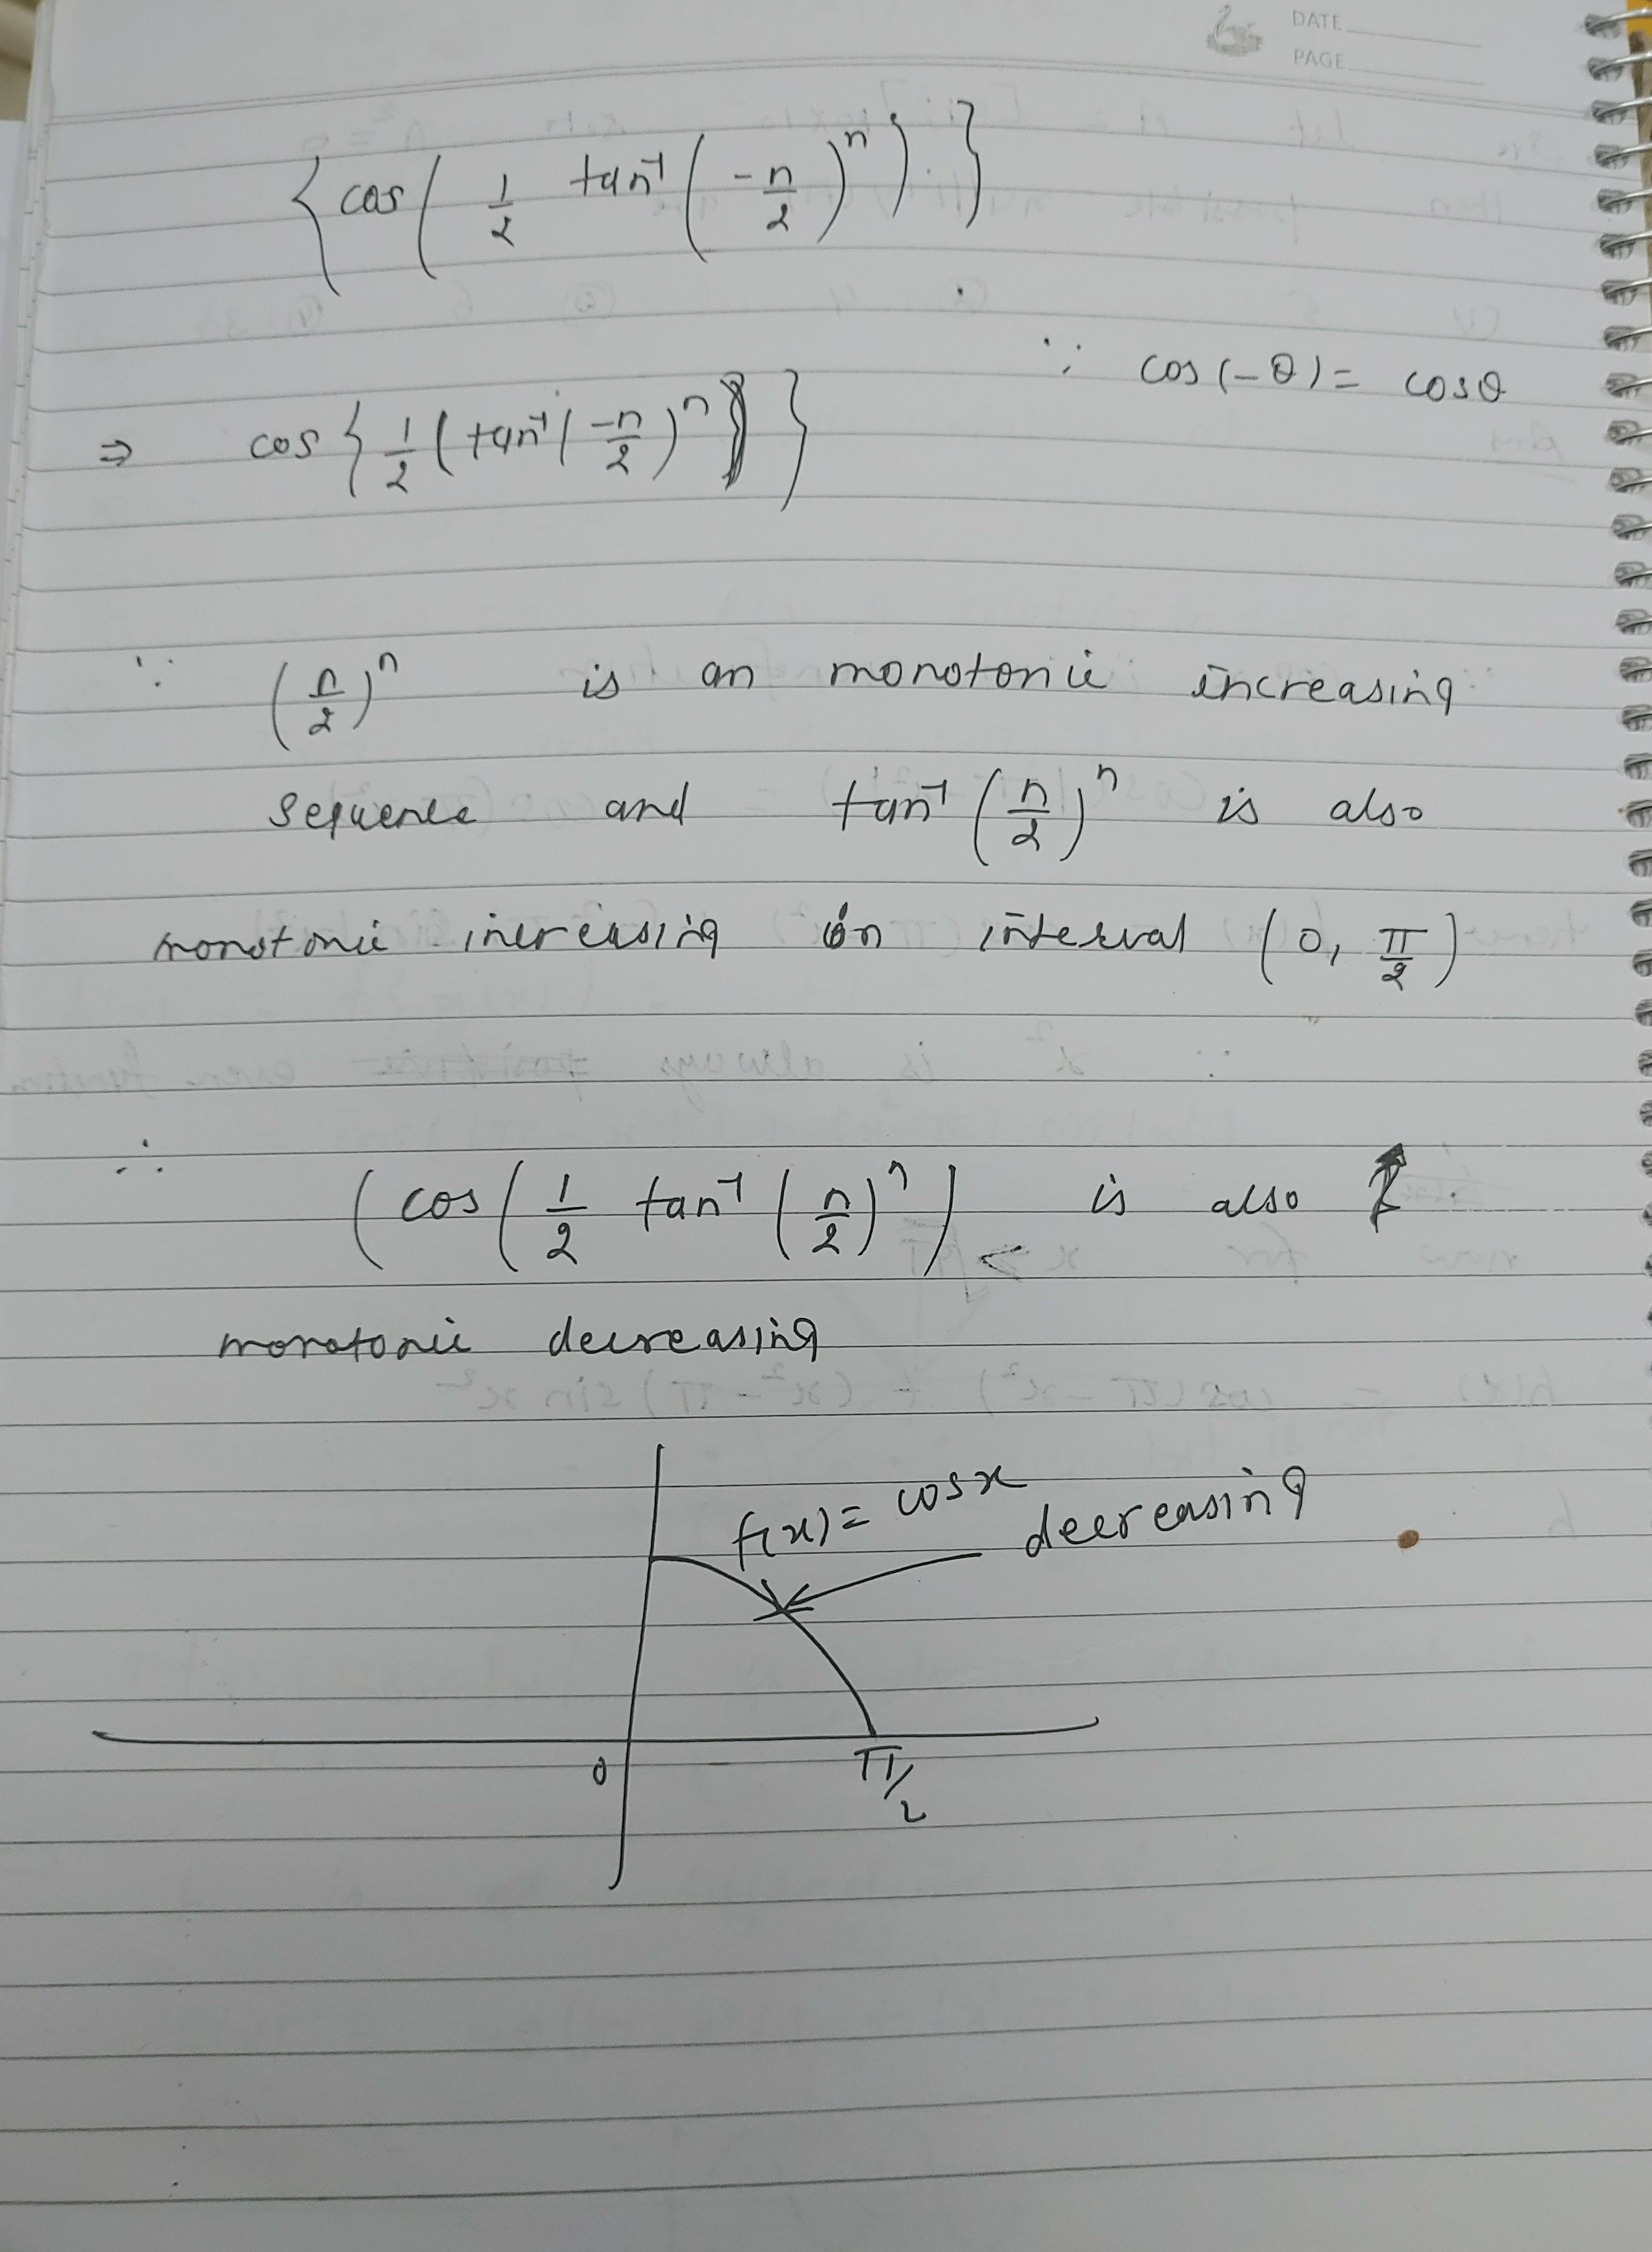 DATE
PAGE
{cos(1/2 tan⁻¹(-n/2)ⁿ)}
∵ cos(-θ) = cosθ
⇒ cos{1/2(tan⁻¹(-n/2)ⁿ)}
∵ (n/2)ⁿ is an monotonic increasing
sequence and tan⁻¹(n/2)ⁿ is also
monotonic increasing on interval (0, π/2)
∴ (cos(1/2 tan⁻¹(n/2)ⁿ) is also
monotonic decreasing
f(x) = cosx
decreasing
0
π/2